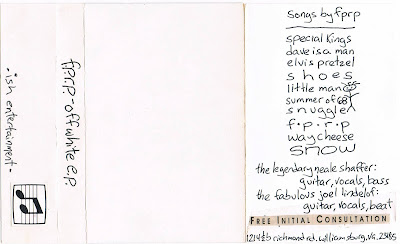 -ish entertainment-
f.p.r.p - off white e.p.
songs by fprp
special kings
dave is a man
elvis pretzel
shoes
little man
summer of 68
snuggler
f•p•r•p
way cheese
snow
the legendary neale shaffer:
guitar, vocals, bass
the fabulous joel lindelof:
guitar, vocals, beat
FREE INITIAL CONSULTATION
1214½b richmond rd. williamsburg, va. 23185